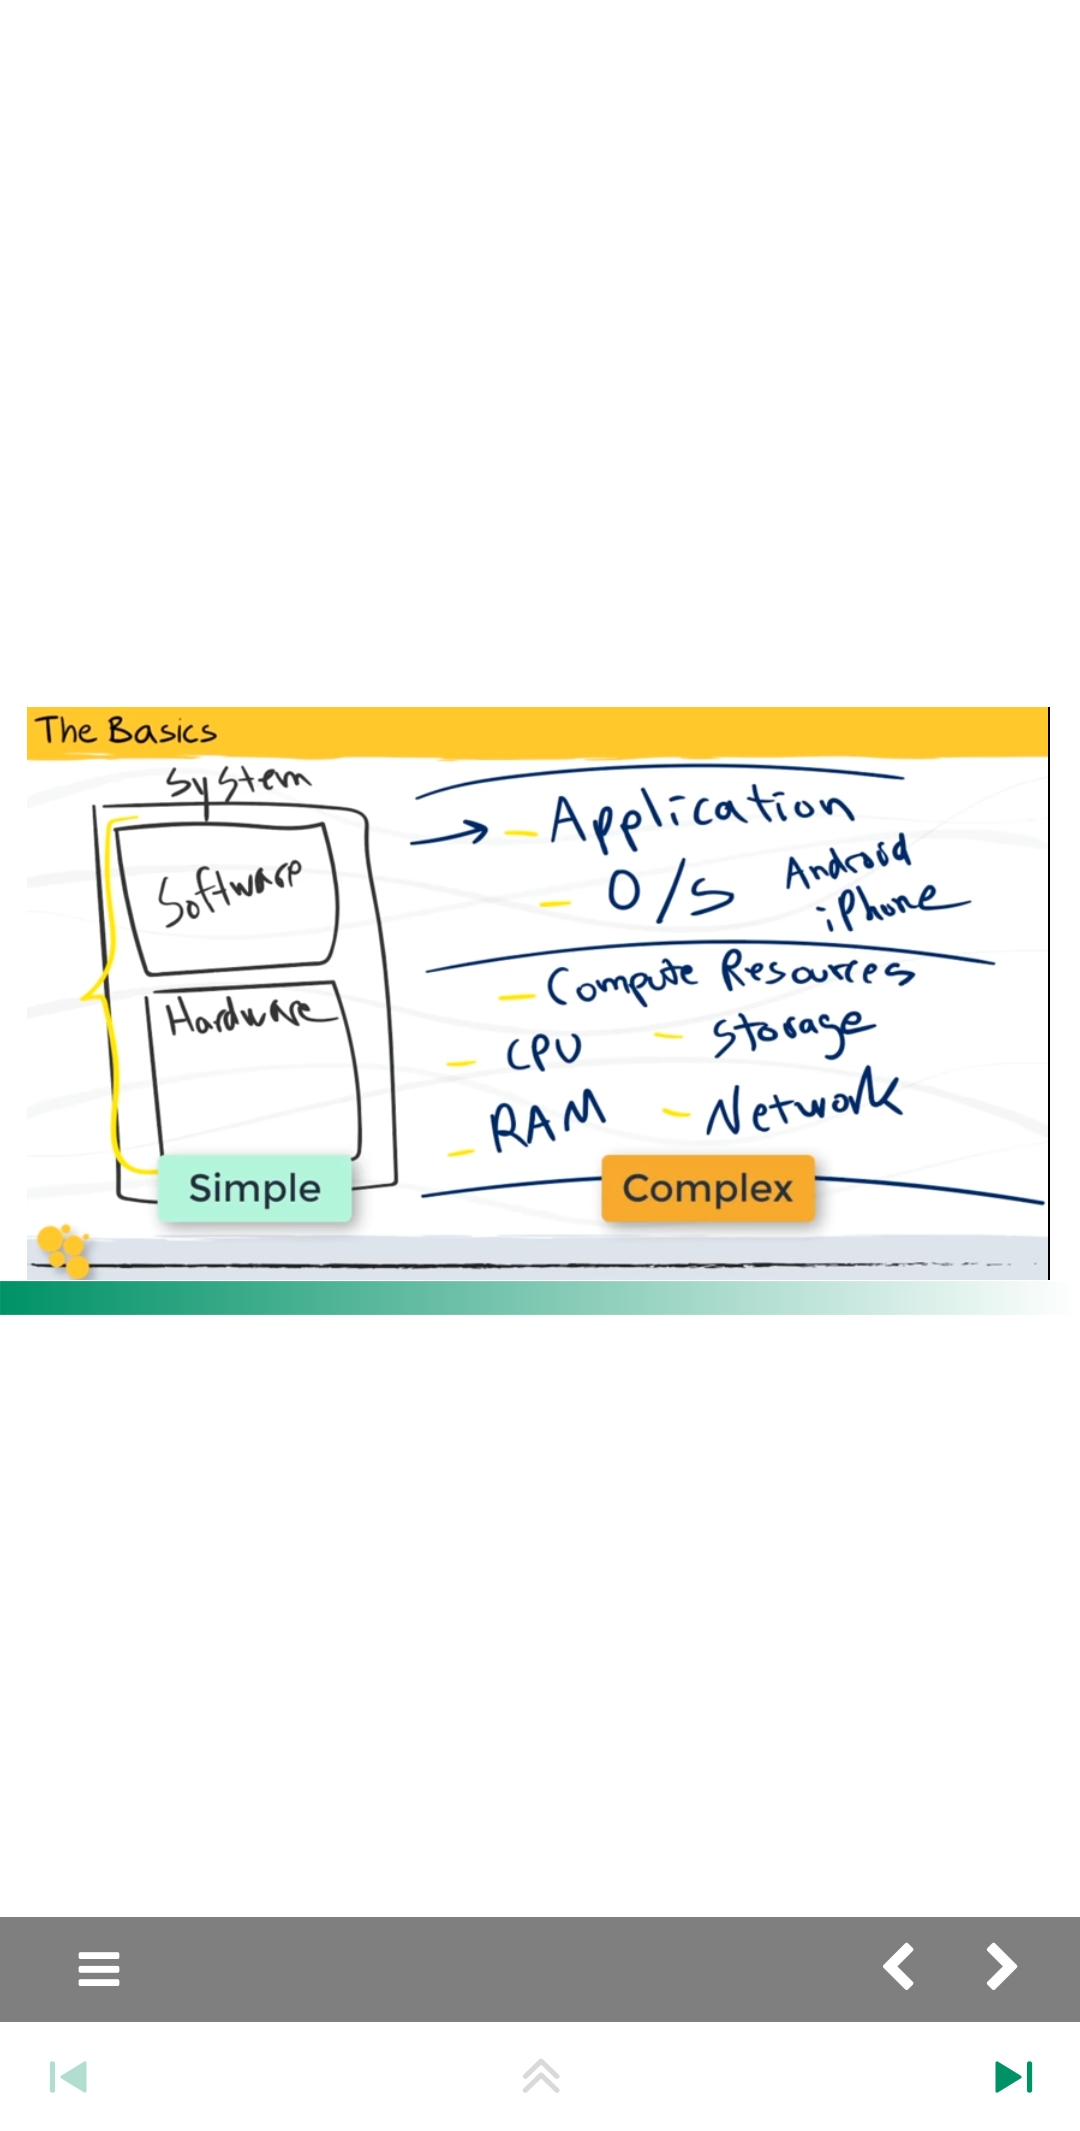 The Basics
System
Software
Hardware
Simple
Application
O/S Android
iPhone
Compute Resources
CPU - Storage
RAM - Network
Complex